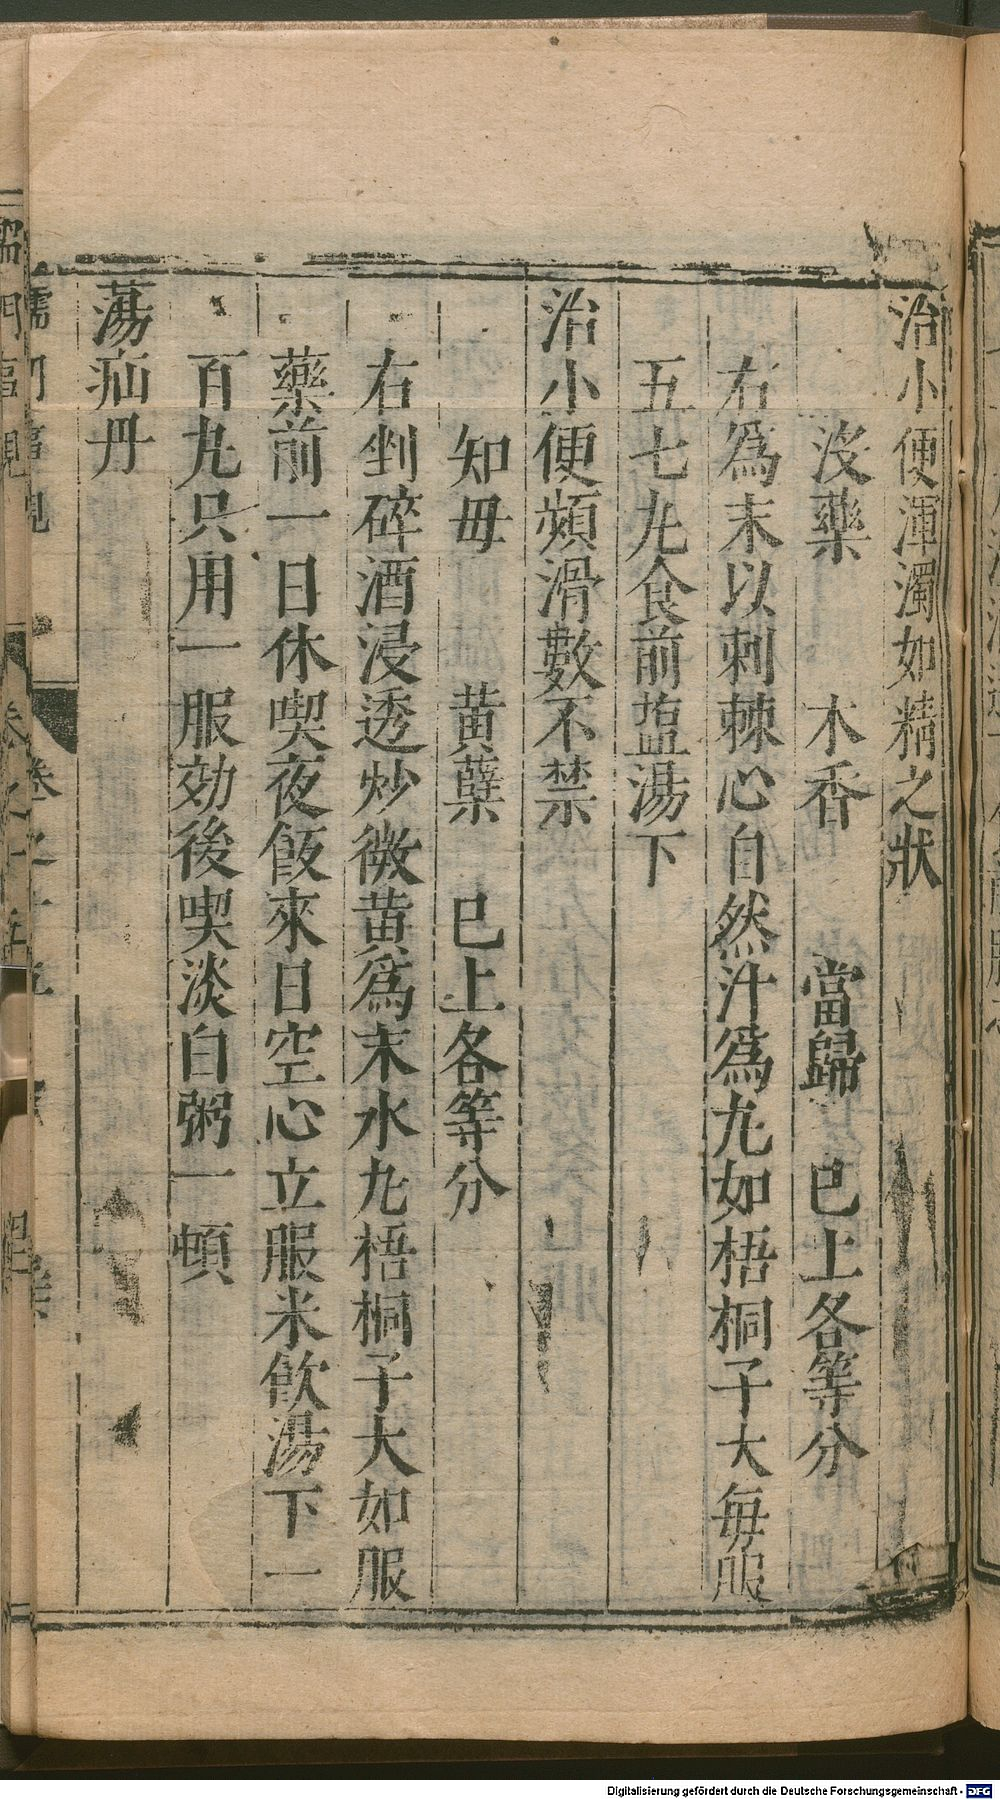 治小便渾濁如精之狀
沒藥 木香 當歸 已上各等分
右爲末以刺棘心自然汁爲丸如梧桐子大每服
五七丸食前塩湯下
治小便頻滑數不禁
知母 黃蘗 已上各等分
右剉碎酒浸透炒微黃爲末水丸梧桐子大如服
藥前一日休喫夜飯來日空心立服米飮湯下一
百丸只用一服効後喫淡白粥一頓
蕩疝丹
儒門事親 卷之十五
Digitalisierung gefördert durch die Deutsche Forschungsgemeinschaft - DFG